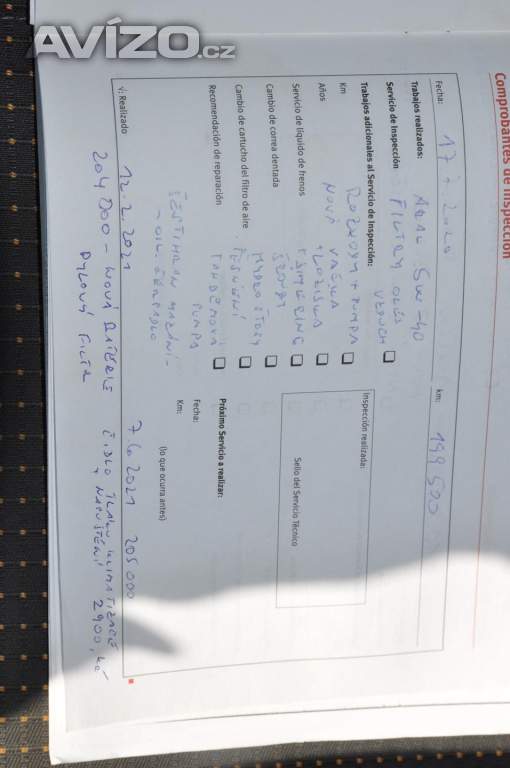 AVÍZO.cz
Comprobantes de Inspección
Fecha: 17 2020
km: 199 500
Trabajos realizados: 5W-40
Servicio de Inspección FILTRY OLEJ
VZDUCH
Trabajos adicionales al Servicio de Inspección:
Inspección realizada:
Km ROZVODY + PUMPA
Años NOVÁ VAČKA
+ LOŽISKA
Servicio de líquido de frenos
Cambio de correa dentada
Cambio de cartucho del filtro de aire TĚSNĚNÍ
Recomendación de reparación TANDEMOVÁ
PUMPA
Sello del Servicio Técnico
Próximo Servicio a realizar:
Fecha:
Km:
(lo que ocurra antes)
√: Realizado
12.2.2021
204 000 - NOVÁ BATERIE
PYLOVÝ FILTR
7.6.2021 205 000
ČIDLO TLAKU KLIMATIZACE
+ NAPUŠTĚNÍ 2900,- Kč